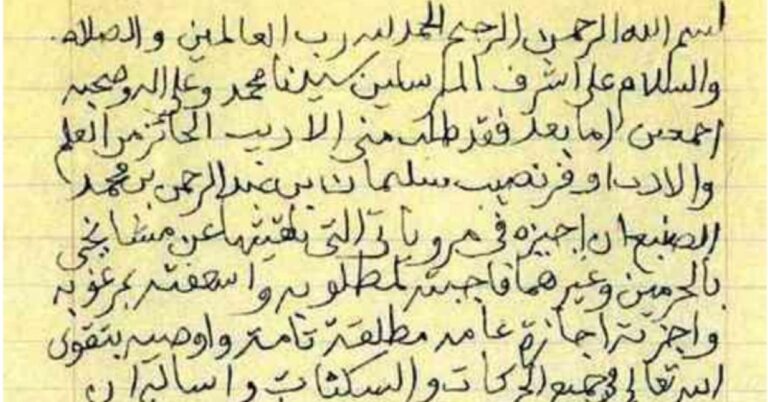 بسم الله الرحمن الرحيم الحمد لله رب العالمين والصلاه
والسلام على اشرف المرسلين سيدنا محمد وعلى اله وصحبه
اجمعين اما بعد فقد طلب مني الاديب الحائز من العلم
والادب اوفر نصيب سليمان بن عبد الرحمن بن محمد
الصنيع ان اجيزه في مروياتي التي تلقيتها عن مشايخي
بالحرمين وغيرهما فاجبته لمطلوبه واسعفته بمرغوبه
واجزته اجازة عامه مطلقة تامة واوصيه بتقوى
الله تعالى في جميع الحركات والسكنات واساله ان